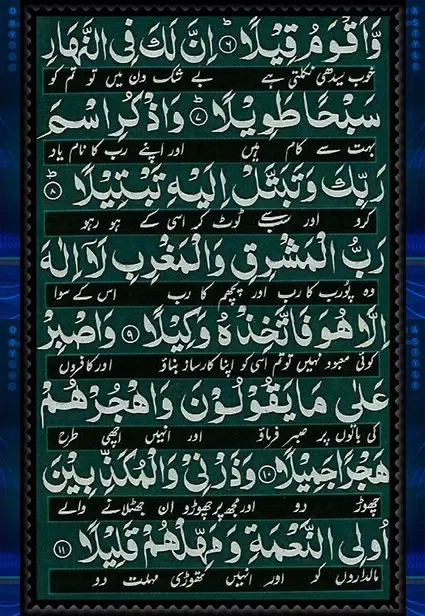 وَّاَقْوَمُ قِيْلًا ؕ﴿۶﴾ اِنَّ لَكَ فِى النَّهَارِ
خوب سیدھی نکلتی ہے بے شک دن میں تو تم کو
سَبْحًا طَوِيْلًا ؕ﴿۷﴾ وَاذْكُرِ اسْمَ
بہت سے کام ہیں اور اپنے رب کا نام یاد
رَبِّكَ وَتَبَتَّلْ اِلَيْهِ تَبْتِيْلًا ؕ﴿۸﴾
کرو اور سب سے ٹوٹ کر اسی کے ہو رہو
رَبُّ الْمَشْرِقِ وَالْمَغْرِبِ لَاۤ اِلٰهَ
وہ پورب کا رب اور پچھم کا رب اس کے سوا
اِلَّا هُوَ فَاتَّخِذْهُ وَكِيْلًا ﴿۹﴾ وَاصْبِرْ
کوئی معبود نہیں تو تم اسی کو اپنا کارساز بناؤ اور کافروں
عَلٰى مَا يَقُوْلُوْنَ وَاهْجُرْهُمْ
کی باتوں پر صبر فرماؤ اور انہیں اچھی طرح
هَجْرًا جَمِيْلًا ﴿۱۰﴾ وَذَرْنِىْ وَالْمُكَذِّبِيْنَ
چھوڑ دو اور مجھ پر چھوڑو ان جھٹلانے والے
اُولِى النَّعْمَةِ وَمَهِّلْهُمْ قَلِيْلًا ﴿۱۱﴾
مالداروں کو اور انہیں تھوڑی مہلت دو